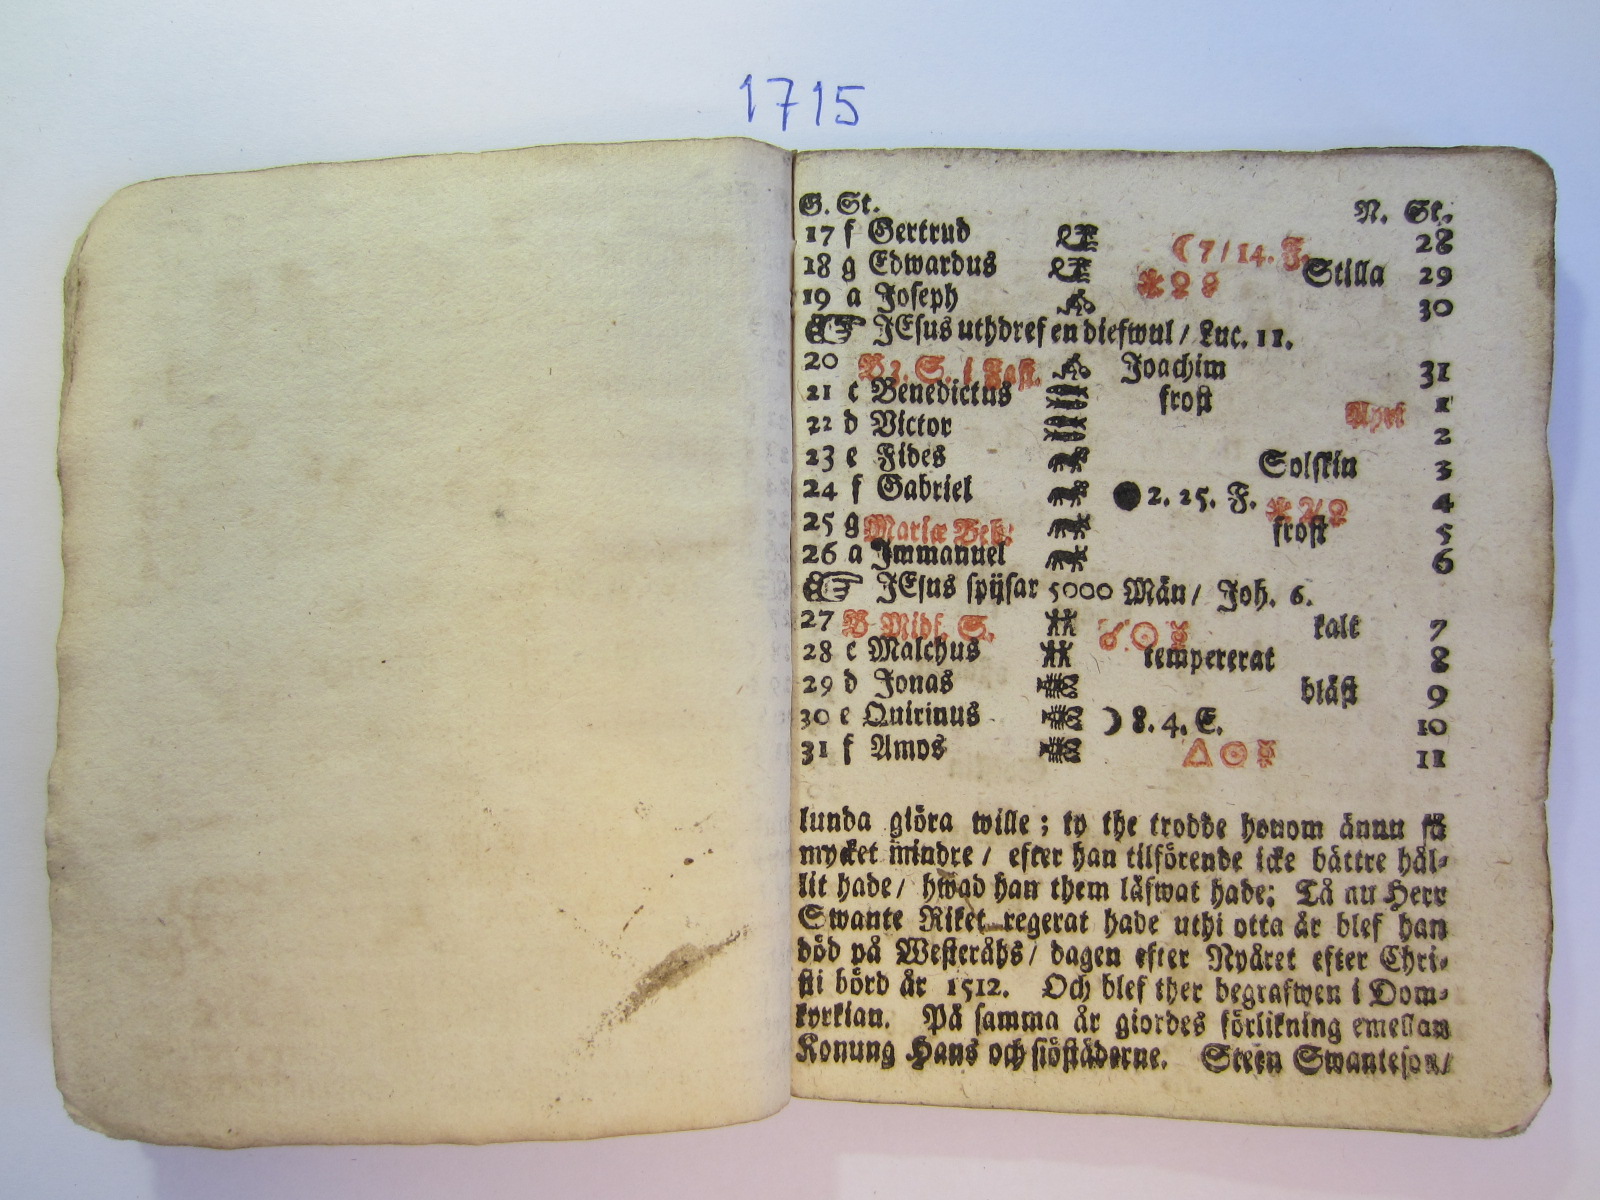 1715
G. St. N. St.
17 f Gertrud ☾ 7/14. F. 28
18 g Edwardus Stilla 29
19 a Joseph 30
☞ JEsus uthdref en diefwul / Luc. 11.
20 B 3. S. i Fast. Joachim 31
21 c Benedictus frost 1
22 d Victor 2
23 e Fides Solskin 3
24 f Gabriel ● 2. 25. F. 4
25 g Mariæ Beb: frost 5
26 a Immanuel 6
☞ JEsus spijsar 5000 Män / Joh. 6.
27 B Midf. S. ☌ ☉ ☿ kalt 7
28 c Malchus tempererat 8
29 d Jonas bläst 9
30 e Quirinus ☽ 8. 4. E. 10
31 f Amos △ ☉ ☿ 11
lunda giöra wille ; ty the trodde honom ännu så
mycket mindre / efter han tilförende icke bättre hål-
lit hade / hwad han them läfwat hade; Tå nu Herr
Swante Riket regerat hade uthi otta år blef han
död på Westeråhs / dagen efter Nyåret efter Chri-
sti börd år 1512. Och blef ther begrafwen i Dom-
kyrkian. På samma år giordes förlikning emellan
Konung Hans och siöstäderne. Steen Swanteson /